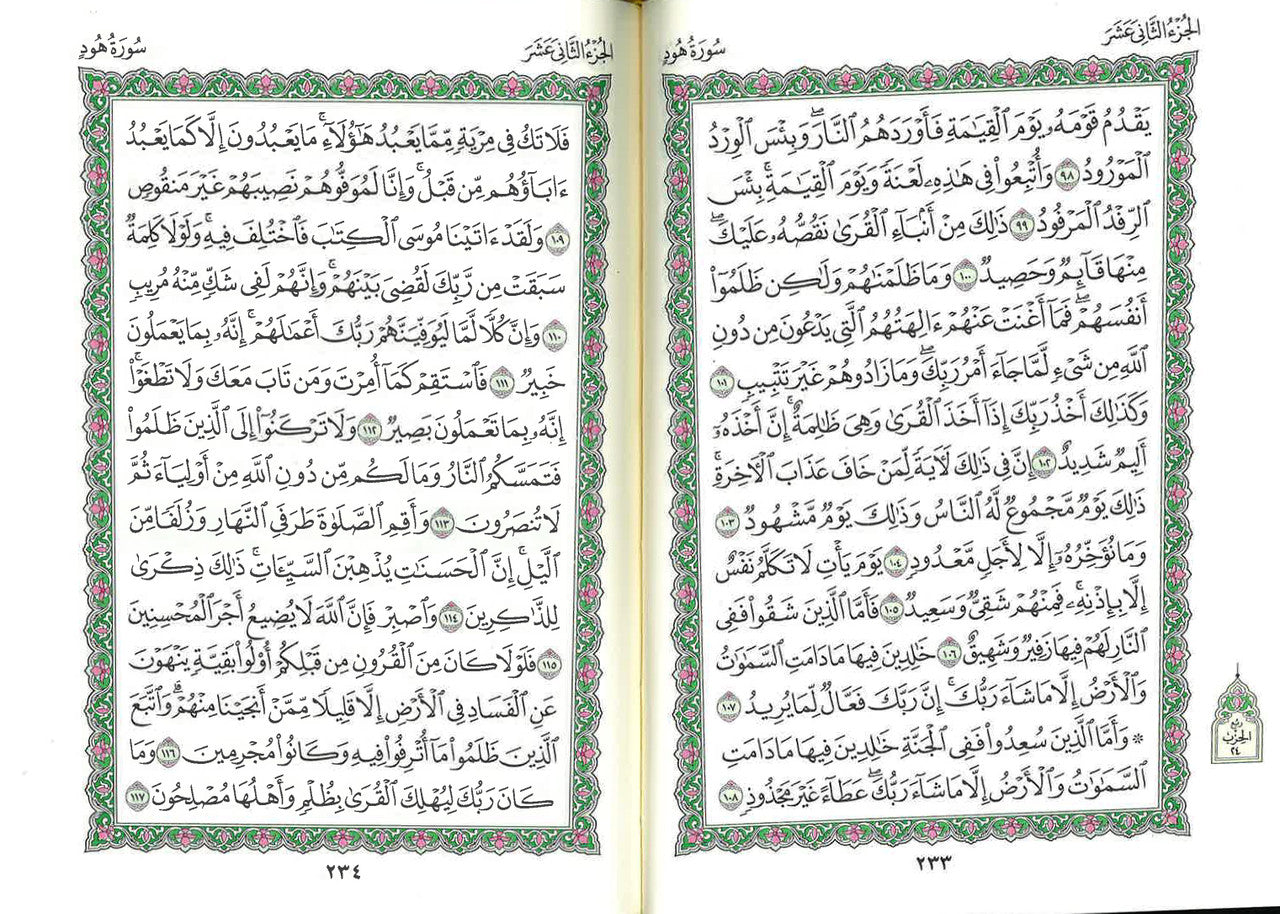 الجُزْءُ الثَّانِىَ عَشَرَ
سُورَةُ هُودٍ
يَقۡدُمُ قَوۡمَهُۥ يَوۡمَ ٱلۡقِيَٰمَةِ فَأَوۡرَدَهُمُ ٱلنَّارَۖ وَبِئۡسَ ٱلۡوِرۡدُ
ٱلۡمَوۡرُودُ ٩٨ وَأُتۡبِعُواْ فِي هَٰذِهِۦ لَعۡنَةٗ وَيَوۡمَ ٱلۡقِيَٰمَةِۚ بِئۡسَ
ٱلرِّفۡدُ ٱلۡمَرۡفُودُ ٩٩ ذَٰلِكَ مِنۡ أَنۢبَآءِ ٱلۡقُرَىٰ نَقُصُّهُۥ عَلَيۡكَۖ
مِنۡهَا قَآئِمٞ وَحَصِيدٞ ١٠٠ وَمَا ظَلَمۡنَٰهُمۡ وَلَٰكِن ظَلَمُوٓاْ
أَنفُسَهُمۡۖ فَمَآ أَغۡنَتۡ عَنۡهُمۡ ءَالِهَتُهُمُ ٱلَّتِي يَدۡعُونَ مِن دُونِ
ٱللَّهِ مِن شَيۡءٖ لَّمَّا جَآءَ أَمۡرُ رَبِّكَۖ وَمَا زَادُوهُمۡ غَيۡرَ تَتۡبِيبٖ ١٠١
وَكَذَٰلِكَ أَخۡذُ رَبِّكَ إِذَآ أَخَذَ ٱلۡقُرَىٰ وَهِيَ ظَٰلِمَةٌۚ إِنَّ أَخۡذَهُۥٓ
أَلِيمٞ شَدِيدٌ ١٠٢ إِنَّ فِي ذَٰلِكَ لَأٓيَةٗ لِّمَنۡ خَافَ عَذَابَ ٱلۡأٓخِرَةِۚ
ذَٰلِكَ يَوۡمٞ مَّجۡمُوعٞ لَّهُ ٱلنَّاسُ وَذَٰلِكَ يَوۡمٞ مَّشۡهُودٞ ١٠٣
وَمَا نُؤَخِّرُهُۥٓ إِلَّا لِأَجَلٖ مَّعۡدُودٖ ١٠٤ يَوۡمَ يَأۡتِ لَا تَكَلَّمُ نَفۡسٌ
إِلَّا بِإِذۡنِهِۦۚ فَمِنۡهُمۡ شَقِيّٞ وَسَعِيدٞ ١٠٥ فَأَمَّا ٱلَّذِينَ شَقُواْ فَفِي
ٱلنَّارِ لَهُمۡ فِيهَا زَفِيرٞ وَشَهِيقٌ ١٠٦ خَٰلِدِينَ فِيهَا مَا دَامَتِ ٱلسَّمَٰوَٰتُ
وَٱلۡأَرۡضُ إِلَّا مَا شَآءَ رَبُّكَۚ إِنَّ رَبَّكَ فَعَّالٞ لِّمَا يُرِيدُ ١٠٧
* وَأَمَّا ٱلَّذِينَ سُعِدُواْ فَفِي ٱلۡجَنَّةِ خَٰلِدِينَ فِيهَا مَا دَامَتِ
ٱلسَّمَٰوَٰتُ وَٱلۡأَرۡضُ إِلَّا مَا شَآءَ رَبُّكَۖ عَطَآءً غَيۡرَ مَجۡذُوذٖ ١٠٨
ربع
الحزب
٢٤
٢٣٣
الجُزْءُ الثَّانِىَ عَشَرَ
سُورَةُ هُودٍ
فَلَا تَكُ فِي مِرۡيَةٖ مِّمَّا يَعۡبُدُ هَٰٓؤُلَآءِۚ مَا يَعۡبُدُونَ إِلَّا كَمَا يَعۡبُدُ
ءَابَآؤُهُم مِّن قَبۡلُۚ وَإِنَّا لَمُوَفُّوهُمۡ نَصِيبَهُمۡ غَيۡرَ مَنقُوصٖ
١٠٩ وَلَقَدۡ ءَاتَيۡنَا مُوسَى ٱلۡكِتَٰبَ فَٱخۡتُلِفَ فِيهِۚ وَلَوۡلَا كَلِمَةٞ
سَبَقَتۡ مِن رَّبِّكَ لَقُضِيَ بَيۡنَهُمۡۚ وَإِنَّهُمۡ لَفِي شَكّٖ مِّنۡهُ مُرِيبٖ
١١٠ وَإِنَّ كُلّٗا لَّمَّا لَيُوَفِّيَنَّهُمۡ رَبُّكَ أَعۡمَٰلَهُمۡۚ إِنَّهُۥ بِمَا يَعۡمَلُونَ
خَبِيرٞ ١١١ فَٱسۡتَقِمۡ كَمَآ أُمِرۡتَ وَمَن تَابَ مَعَكَ وَلَا تَطۡغَوۡاْۚ
إِنَّهُۥ بِمَا تَعۡمَلُونَ بَصِيرٞ ١١٢ وَلَا تَرۡكَنُوٓاْ إِلَى ٱلَّذِينَ ظَلَمُواْ
فَتَمَسَّكُمُ ٱلنَّارُ وَمَا لَكُم مِّن دُونِ ٱللَّهِ مِنۡ أَوۡلِيَآءَ ثُمَّ
لَا تُنصَرُونَ ١١٣ وَأَقِمِ ٱلصَّلَوٰةَ طَرَفَيِ ٱلنَّهَارِ وَزُلَفٗا مِّنَ
ٱلَّيۡلِۚ إِنَّ ٱلۡحَسَنَٰتِ يُذۡهِبۡنَ ٱلسَّيِّـَٔاتِۚ ذَٰلِكَ ذِكۡرَىٰ
لِلذَّٰكِرِينَ ١١٤ وَٱصۡبِرۡ فَإِنَّ ٱللَّهَ لَا يُضِيعُ أَجۡرَ ٱلۡمُحۡسِنِينَ
١١٥ فَلَوۡلَا كَانَ مِنَ ٱلۡقُرُونِ مِن قَبۡلِكُمۡ أُوْلُواْ بَقِيَّةٖ يَنۡهَوۡنَ
عَنِ ٱلۡفَسَادِ فِي ٱلۡأَرۡضِ إِلَّا قَلِيلٗا مِّمَّنۡ أَنجَيۡنَا مِنۡهُمۡۗ وَٱتَّبَعَ
ٱلَّذِينَ ظَلَمُواْ مَآ أُتۡرِفُواْ فِيهِ وَكَانُواْ مُجۡرِمِينَ ١١٦ وَمَا
كَانَ رَبُّكَ لِيُهۡلِكَ ٱلۡقُرَىٰ بِظُلۡمٖ وَأَهۡلُهَا مُصۡلِحُونَ ١١٧
٢٣٤